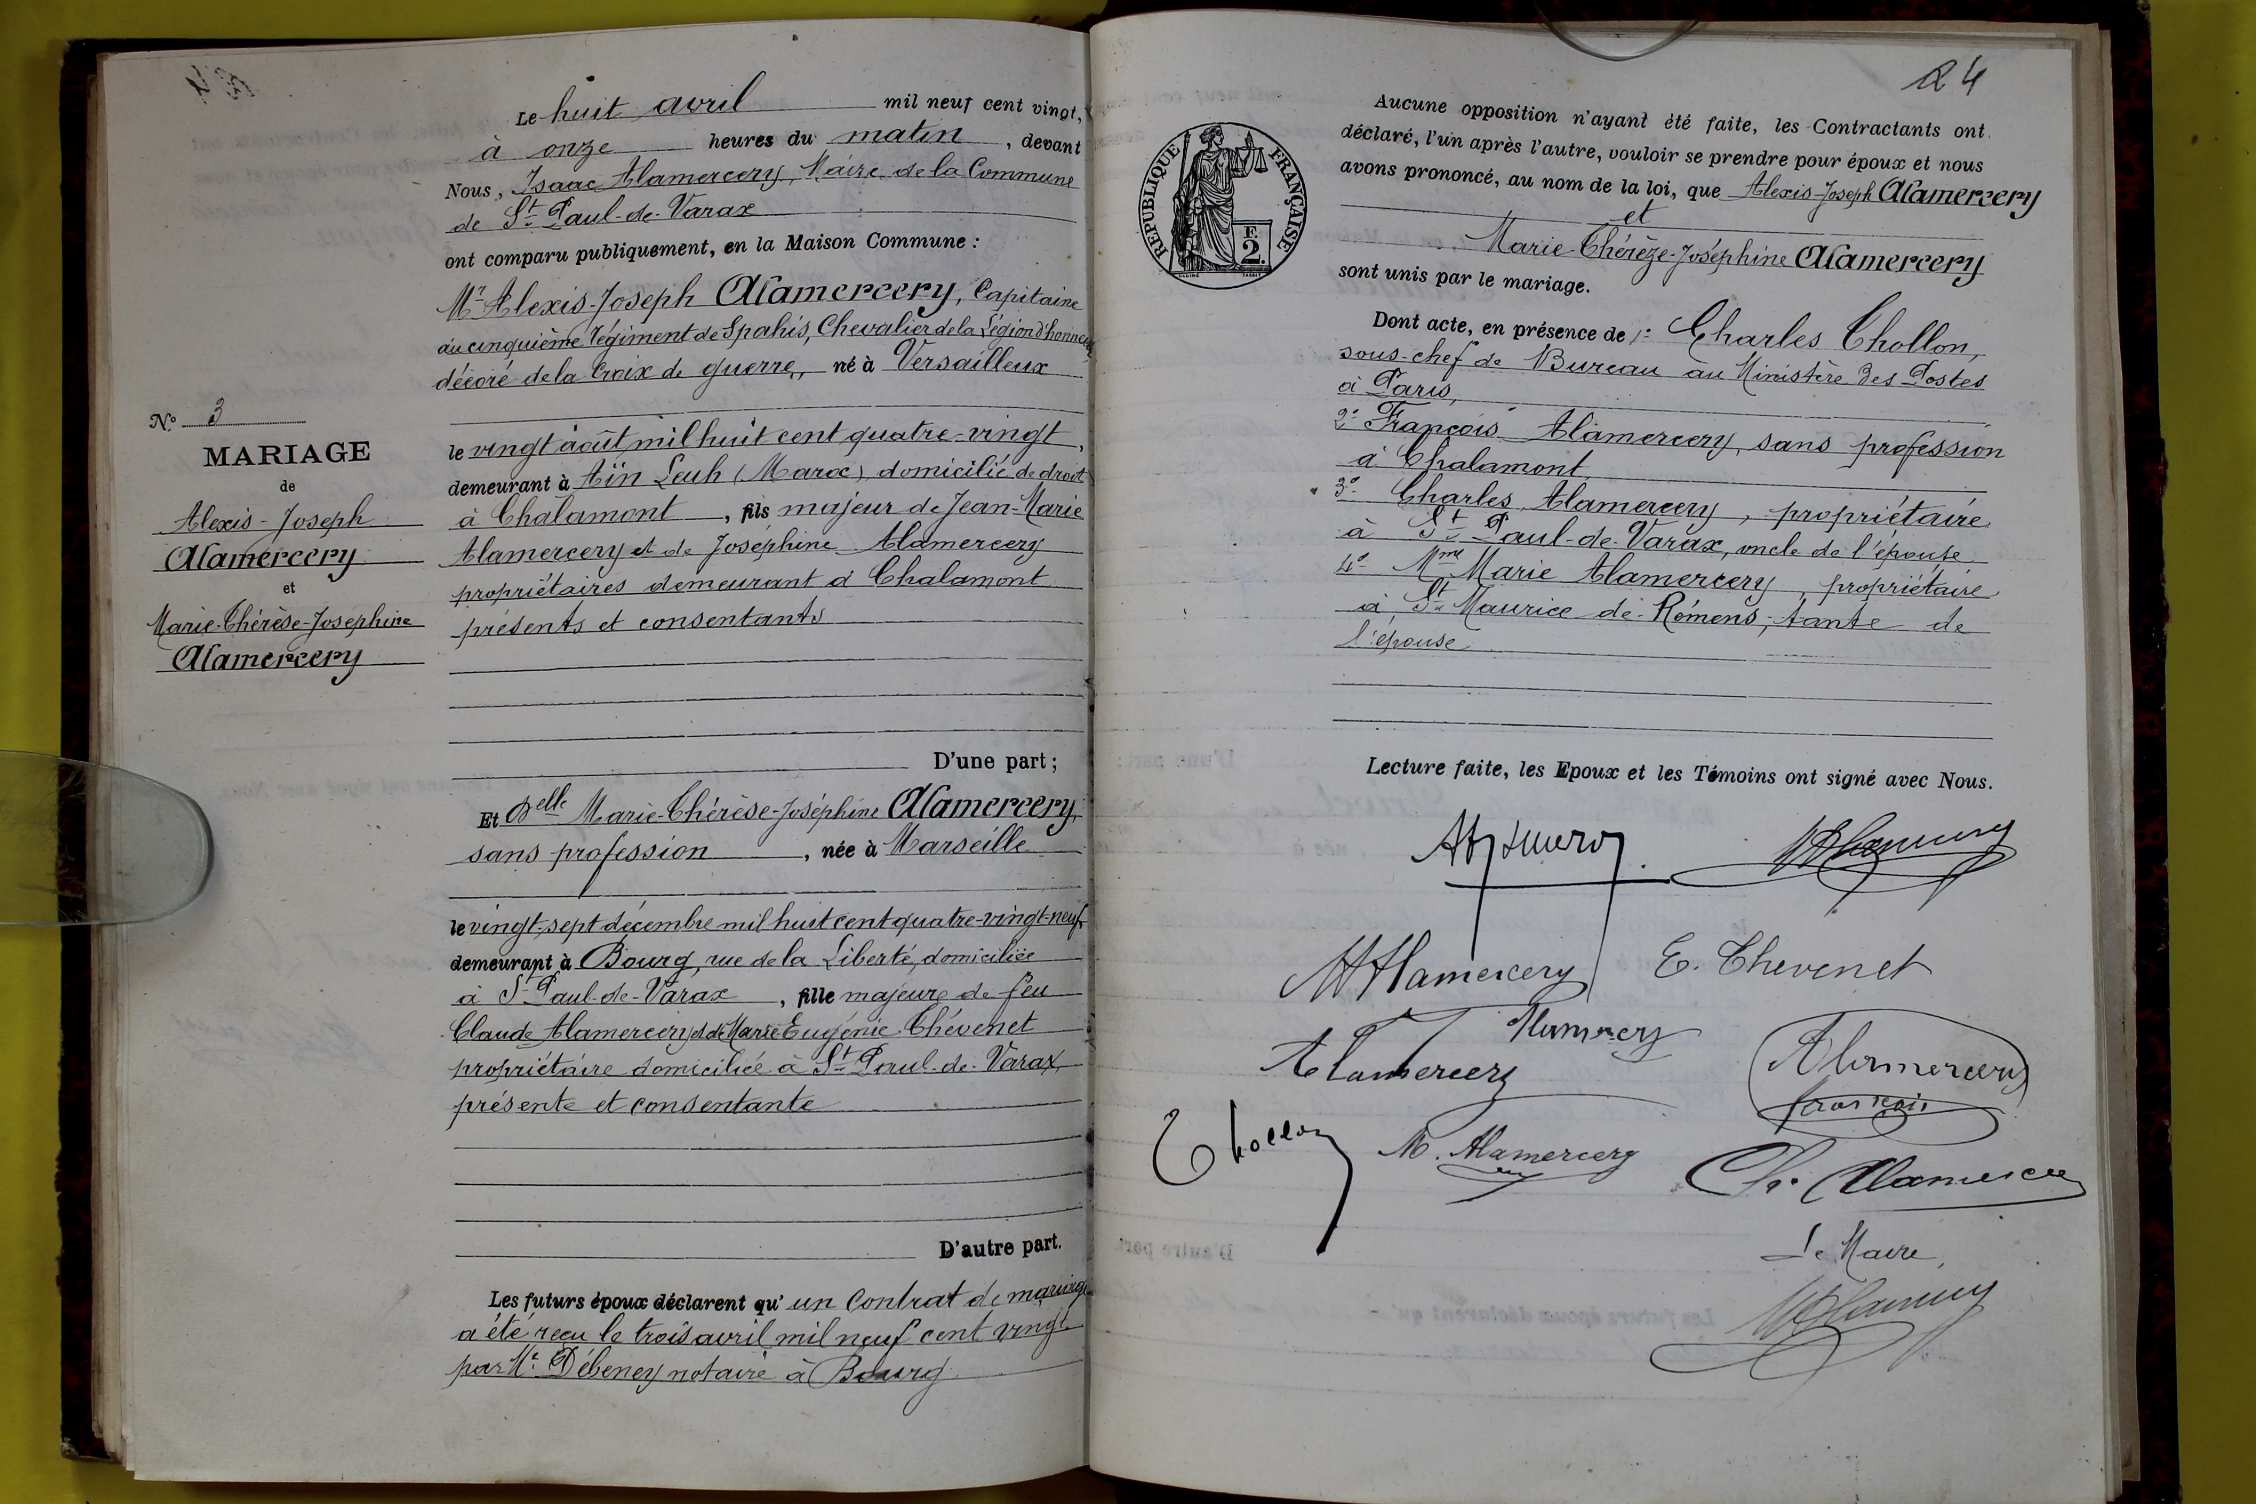 Le huit avril mil neuf cent vingt,
à onze heures du matin, devant
Nous, Isaac Alamercery, Maire de la Commune
de St Paul-de-Varax
ont comparu publiquement, en la Maison Commune :
Mr Alexis-Joseph Alamercery, Capitaine
au cinquième Régiment de Spahis, Chevalier de la Légion d'honneur
décoré de la Croix de guerre, né à Versailleux
le vingt août mil huit cent quatre-vingt,
demeurant à Aïn Leuh (Maroc) domicilié de droit
à Chalamont, fils majeur de Jean-Marie
Alamercery et de Joséphine Alamercery
propriétaires demeurant à Chalamont
présents et consentants
D'une part ;
Et Delle Marie-Thérèse-Joséphine Alamercery,
sans profession, née à Marseille
le vingt-sept décembre mil huit cent quatre-vingt-neuf
demeurant à Bourg, rue de la Liberté, domiciliée
à St Paul-de-Varax, fille majeure de feu
Claude Alamercery et de Marie Eugénie Thévenet
propriétaire domiciliée à St Paul-de-Varax,
présente et consentante
D'autre part.
Les futurs époux déclarent qu'un Contrat de mariage
a été reçu le trois avril mil neuf cent vingt
par Me Débeney notaire à Bourg
N° 3
MARIAGE
de
Alexis-Joseph
Alamercery
et
Marie-Thérèse-Josephine
Alamercery
24
RÉPUBLIQUE FRANÇAISE
F.
2.
Aucune opposition n'ayant été faite, les Contractants ont
déclaré, l'un après l'autre, vouloir se prendre pour époux et nous
avons prononcé, au nom de la loi, que Alexis-Joseph Alamercery
et
Marie-Thérèze-Joséphine Alamercery
sont unis par le mariage.
Dont acte, en présence de 1° Charles Thollon,
sous-chef de Bureau au Ministère des Postes
à Paris,
2° François Alamercery, sans profession
à Chalamont
3° Charles Alamercery, propriétaire
à St Paul-de-Varax, oncle de l'épouse
4° Mme Marie Alamercery, propriétaire
à St Maurice de-Rémens, tante de
l'épouse
Lecture faite, les Epoux et les Témoins ont signé avec Nous.
Alamercery
E. Thevenet
Alamercery
Alamercery
françois
Thollon
M. Alamercery
Ch. Alamercery
Le Maire,